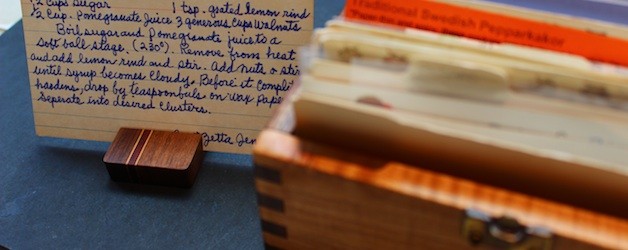 1 tsp. grated lemon rind
1/2 Cup. Pomegranate Juice 3 generous Cups Walnuts
Boil sugar and Pomegranate juice to a
Soft ball stage. (230°). Remove from heat
and add lemon rind and stir. Add nuts & stir
until syrup becomes cloudy. Before it
hardens, drop by teaspoonfuls on Wax Paper
Seperate into desired Clusters.
Traditional Swedish Pepparkakor